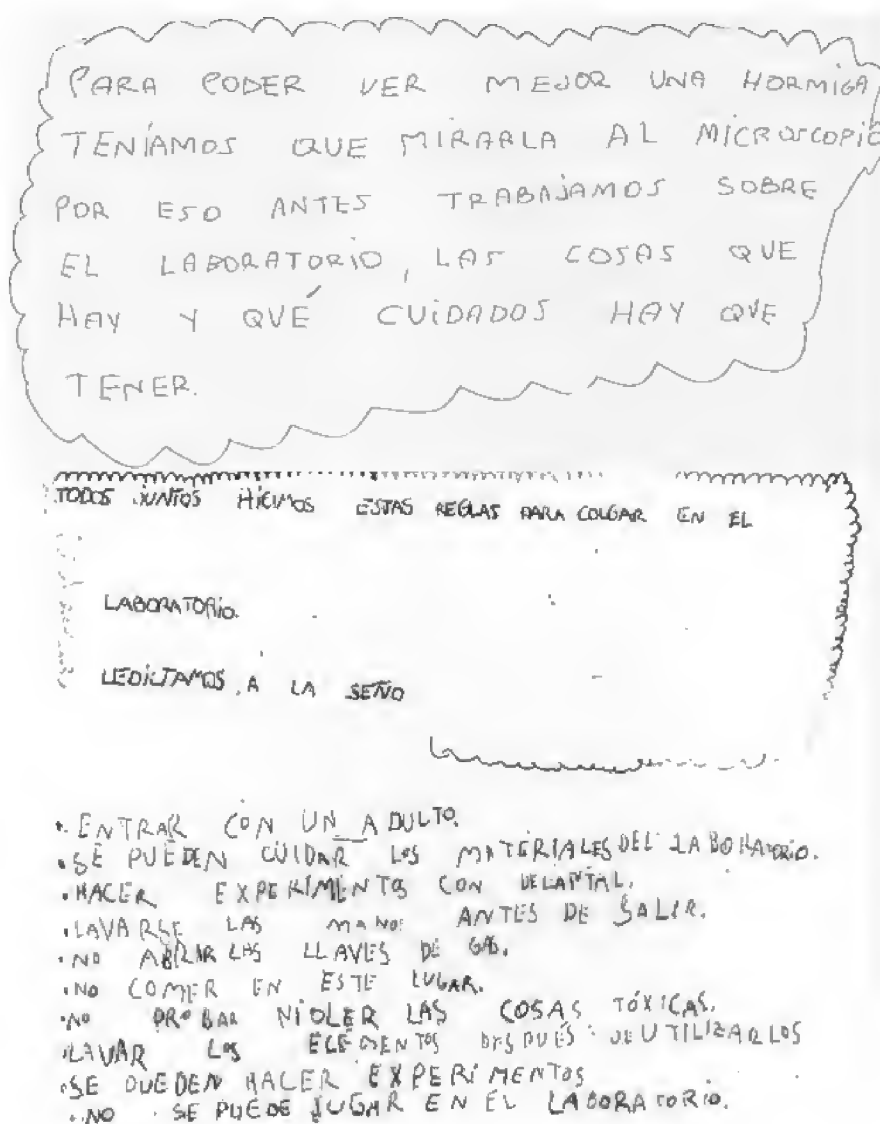 PARA PODER VER MEJOR UNA HORMIGA
TENÍAMOS QUE MIRARLA AL MICROSCOPIO
POR ESO ANTES TRABAJAMOS SOBRE
EL LABORATORIO, LAS COSAS QUE
HAY Y QUÉ CUIDADOS HAY QUE
TENER.
TODOS JUNTOS HICIMOS ESTAS REGLAS PARA COLGAR EN EL
LABORATORIO.
LEDICTAMOS A LA SEÑO
• ENTRAR CON UN ADULTO.
• SE PUEDEN CUIDAR LOS MATERIALES DEL LABORATORIO.
• HACER EXPERIMENTOS CON DELANTAL.
• LAVARSE LAS MANOS ANTES DE SALIR.
• NO ABRIR LAS LLAVES DE GAS.
• NO COMER EN ESTE LUGAR.
• NO PROBAR NIOLER LAS COSAS TÓXICAS.
• LAVAR LOS ELEMENTOS DESPUÉS DE UTILIZARLOS
• SE PUEDEN HACER EXPERIMENTOS
• NO SE PUEDE JUGAR EN EL LABORATORIO.